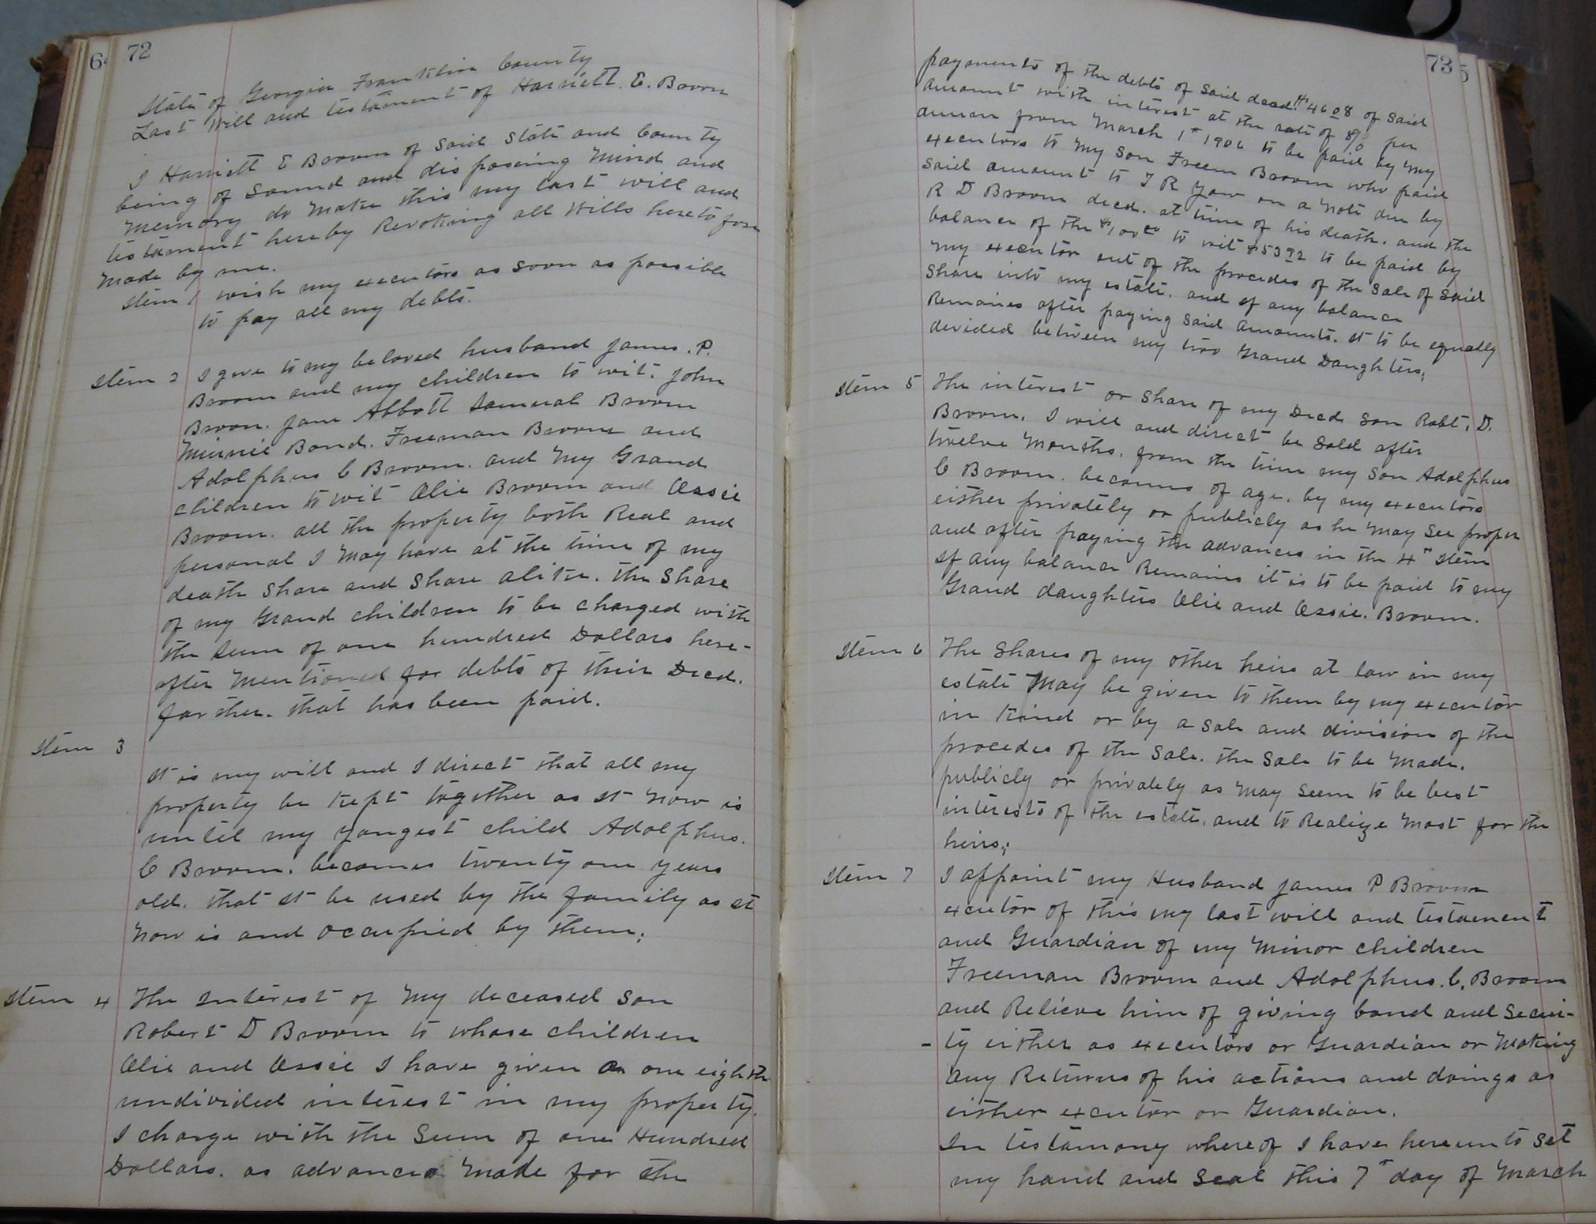 72
State of Georgia Franklin County
Last Will and testament of Harriett. E. Broom
I Harriett E Broom of Said State and County
being of Sound and disposing Mind and
Memory do Make this my last will and
testament hereby Revoking all Wills heretofore
Made by me.
Item 1 wish my executors as soon as possible
to pay all my debts.
Item 2 I give to my beloved husband James. P.
Broom and my children to wit. John
Broom. Jane Abbott Samuel Broom
Minnie Bond. Freeman Broom and
Adolphus C Broom. and My Grand
children to wit Olie Broom and Ossie
Broom. all the property both Real and
personal I May have at the time of my
death Share and Share alike. the Share
of my Grand children to be charged with
the Sum of one hundred Dollars here-
after Mentioned for debts of their Decd.
farther. that has been paid.
Item 3
It is my will and I direct that all my
property be Kept together as It Now is
until my yongest child Adolphus.
C Broom. becomes twenty one years
old. that It be used by the family as It
Now is and occupied by them;
Item 4 The Interest of My deceased Son
Robert D Broom to whose children
Olie and Ossie I have given a one eighth
undivided interest in my property.
I charge with the Sum of one Hundred
Dollars. as advances Made for the
73
payments of the debts of Said dead. $46 08 of Said
amount with interest at the rate of 8% per
annum from March 1st 1906 to be paid by my
executors to My Son Freem Broom who paid
Said amount to J R Yow on a Note due by
R D Broom decd. at time of his death. and the
balance of the $100 00 to wit $53 92 to be paid by
My executor out of the procedes of the Sale of Said
Share into my estate. and if any balance
Remaines after paying Said amounts. It to be equally
devided between my two Grand Daughters;
Item 5 The interest or Share of my Decd Son Robt. D.
Broom. I will and direct be Sold after
twelve Months. from the time my Son Adolphus
C Broom. becomes of age. by my executors
either privately or publicly as he May See proper
and after paying the advances in the 4th Item
If any balance Remains it is to be paid to my
Grand daughters Olie and Ossie. Broom.
Item 6 The Shares of my other heirs at law in my
estate May be given to them by my executor
in Kind or by a Sale and division of the
procedes of the Sale. the Sale to be Made.
publicly or privately as May Seem to be best
interests of the estate. and to Realize Most for the
heirs;
Item 7 I appoint my Husband James P Broom
excutor of this my last will and testament
and Guardian of my Minor children
Freeman Broom and Adolphus. C. Broom
and Relieve him of giving bond and Securi-
-ty either as executors or Guardian or Making
any Returns of his actions and doings as
either excutor or Guardian.
In testamony whereof I have hereunto Set
my hand and Seal this 7th day of March